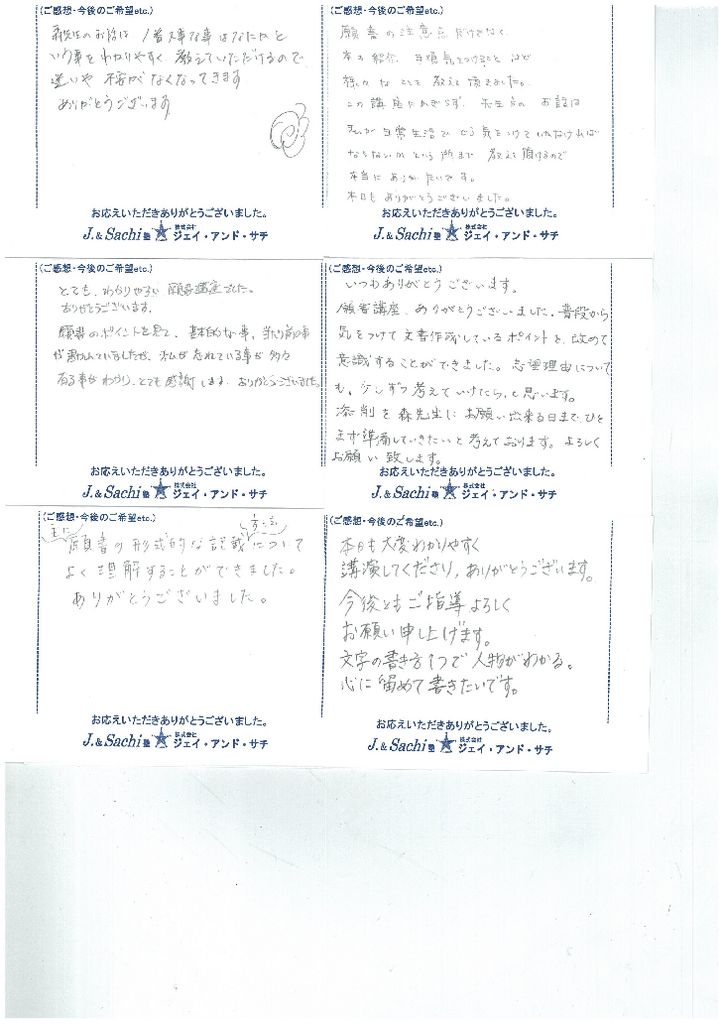 (ご感想・今後のご希望etc.)
先生のお話は 1番大事な事はなにかと
いう事をわかりやすく 教えていただけるので
迷いや 不安がなくなってきます
ありがとうございます
お応えいただきありがとうございました。
J.&Sachi塾 株式会社 ジェイ・アンド・サチ
(ご感想・今後のご希望etc.)
願書の注意点だけでなく
本の紹介、気をつけること など
様々な ことを 教えて頂きました。
この講座にかぎらず 先生方の お話は
私が日常生活で どう気をつけていかなければ
ならないか という所まで 教えて頂けるので
本当に ありがたいです。
本日も ありがとうございました。
お応えいただきありがとうございました。
J.&Sachi塾 株式会社 ジェイ・アンド・サチ
(ご感想・今後のご希望etc.)
とても、わかりやすい 願書講座でした。
ありがとうございます。
願書のポイントを見て、基本的な事、当たり前の事
が書かれていましたが、私が忘れている事が多々
有る事がわかり、とても感謝します。ありがとうございました。
お応えいただきありがとうございました。
J.&Sachi塾 株式会社 ジェイ・アンド・サチ
(ご感想・今後のご希望etc.)
いつもありがとうございます。
願書講座、ありがとうございました。普段から
気をつけて文書作成しているポイントを、改めて
意識することができました。志望理由について
も、少しずつ考えていけたら、と思います。
添削を森先生にお願い出来る日まで、ひと
まず準備していきたいと考えております。よろしく
お願い致します。
お応えいただきありがとうございました。
J.&Sachi塾 株式会社 ジェイ・アンド・サチ
(ご感想・今後のご希望etc.)
主に
願書の形式的な記載について
よく理解することができました。
ありがとうございました。
お応えいただきありがとうございました。
J.&Sachi塾 株式会社 ジェイ・アンド・サチ
(ご感想・今後のご希望etc.)
本日も大変わかりやすく
講演してくださり、ありがとうございます。
今後ともご指導よろしく
お願い申し上げます。
文字の書き方1つで人物がわかる。
心に留めて書きたいです。
お応えいただきありがとうございました。
J.&Sachi塾 株式会社 ジェイ・アンド・サチ